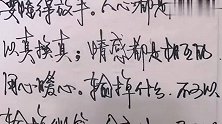 要懂得放手。人心都是
以真换真；情感都是相互的
用心暖心。输掉什么，不可以